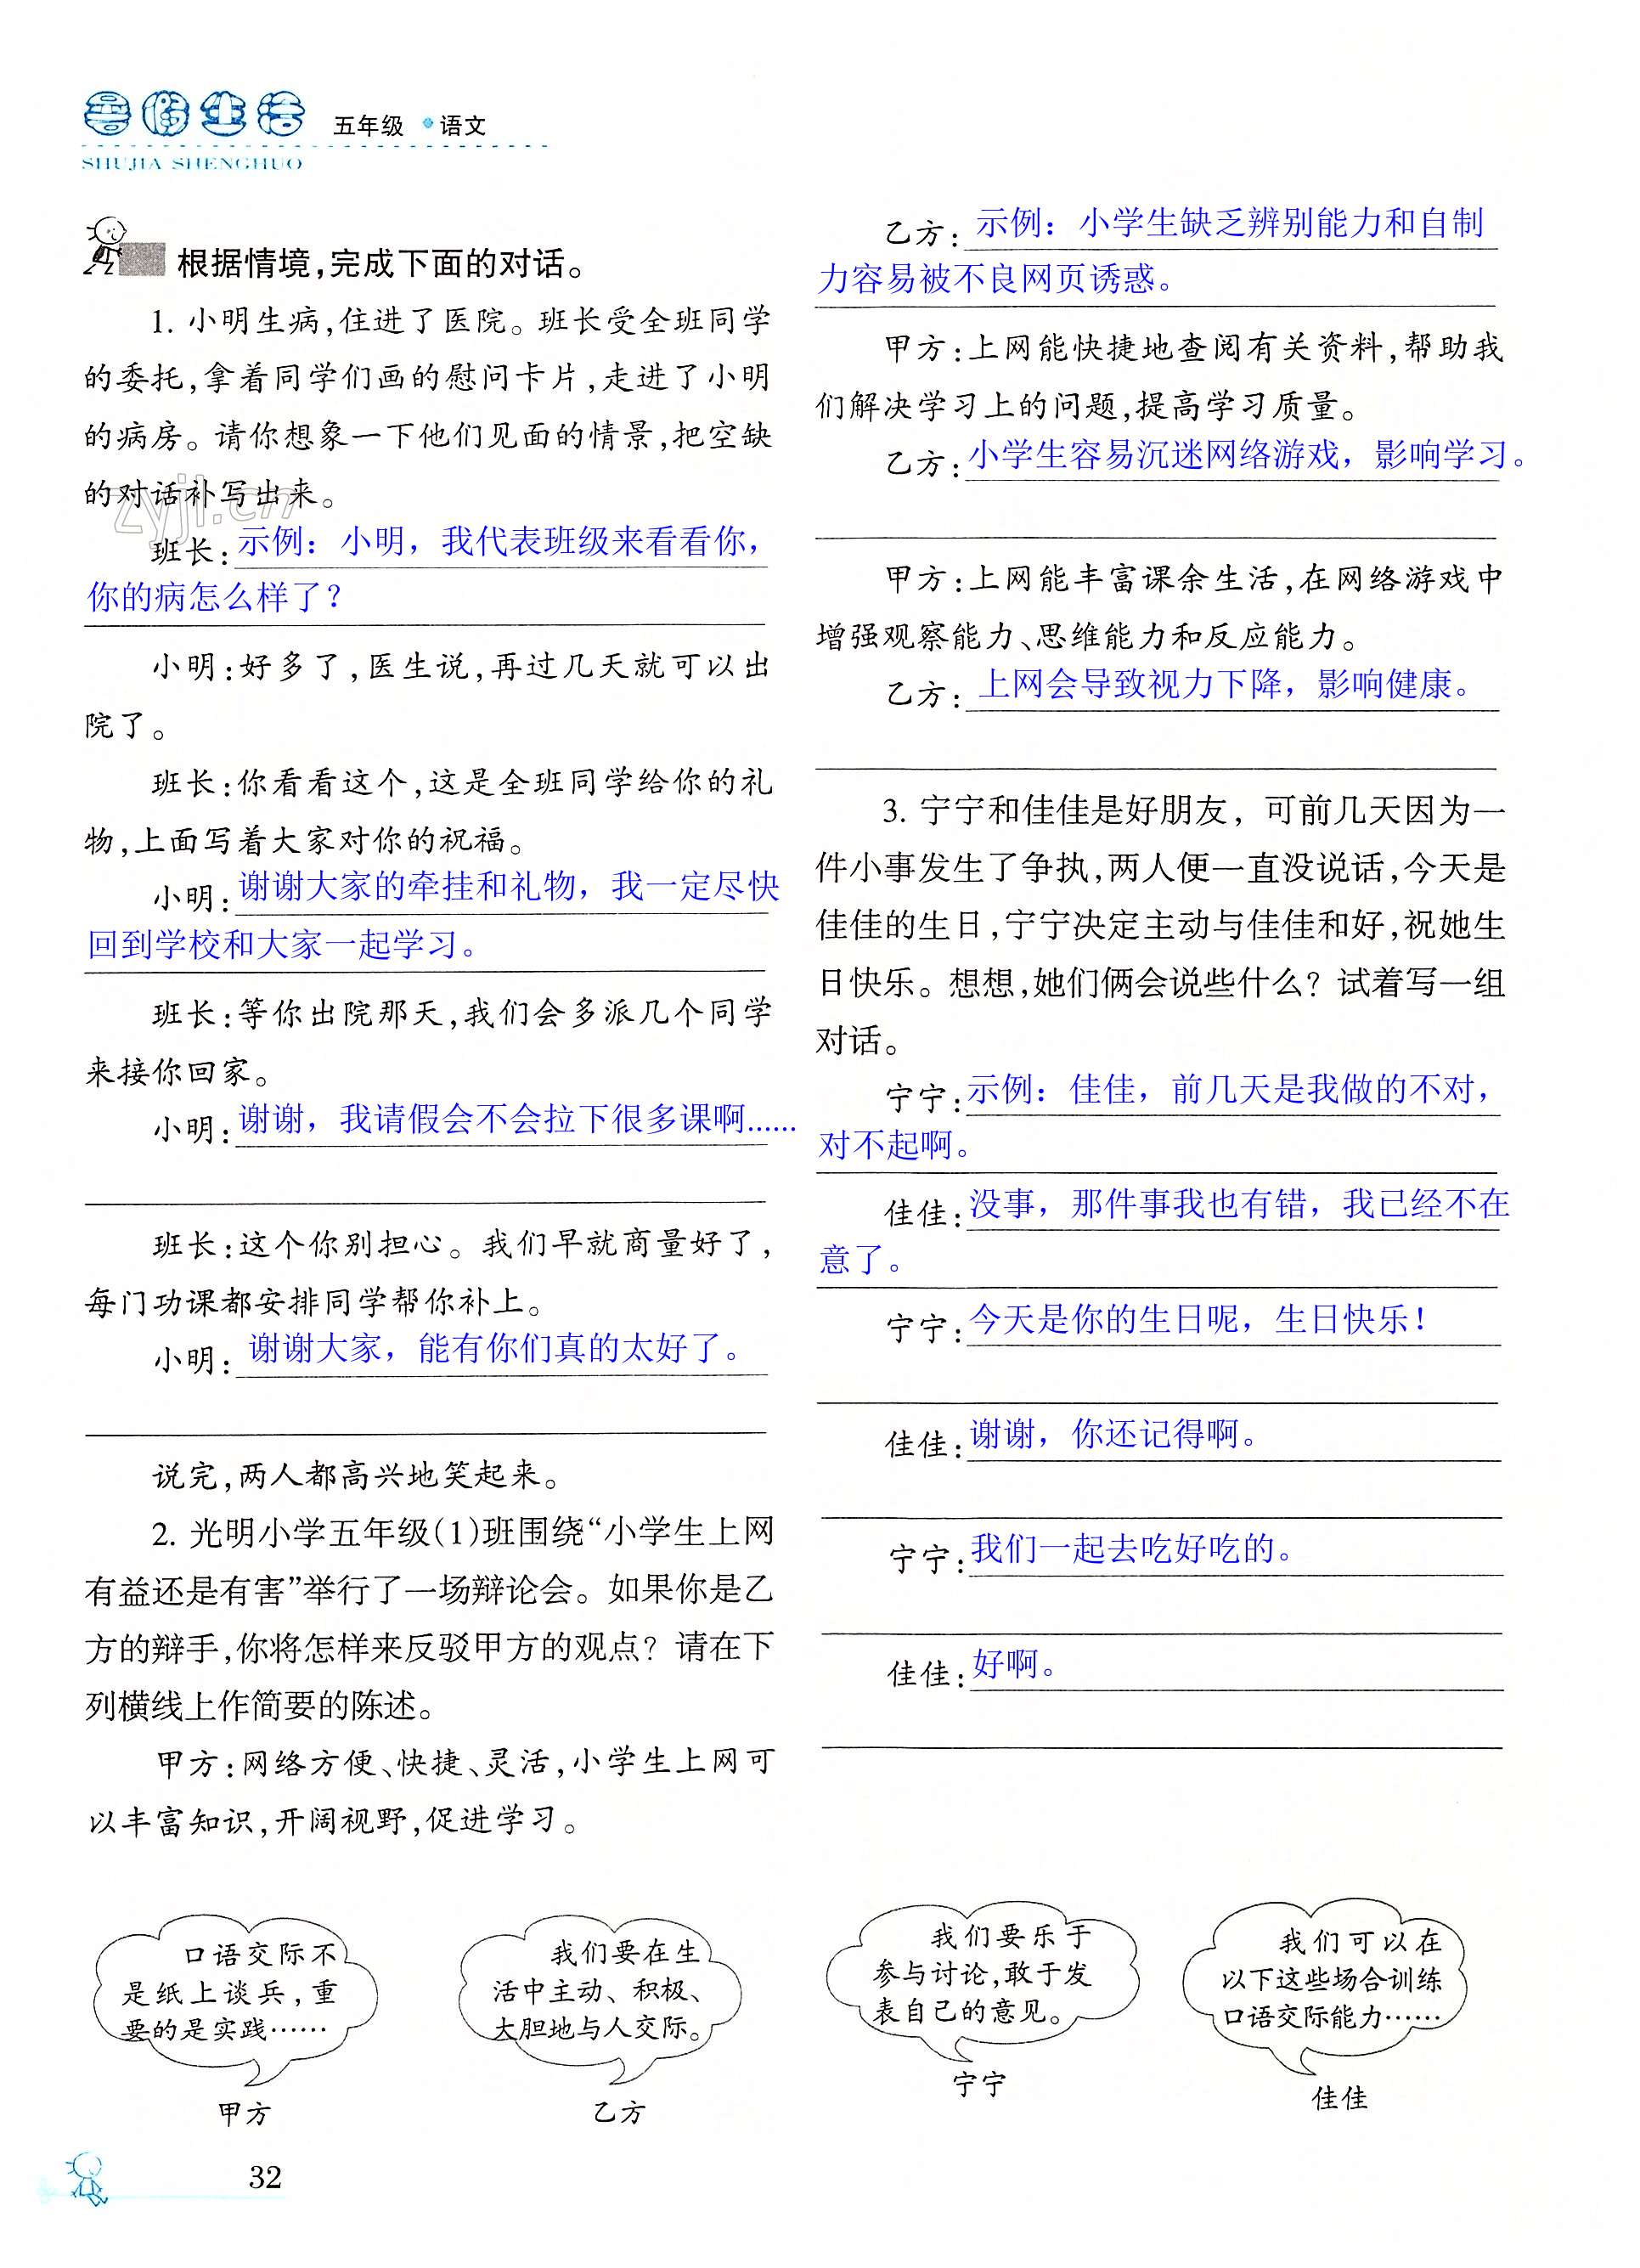 暑假生活 五年级 语文
SHUJIA SHENGHUO
根据情境,完成下面的对话。
1. 小明生病,住进了医院。班长受全班同学
的委托,拿着同学们画的慰问卡片,走进了小明
的病房。请你想象一下他们见面的情景,把空缺
的对话补写出来。
zyjl.cn
班长:示例：小明，我代表班级来看看你，
你的病怎么样了？
小明:好多了,医生说,再过几天就可以出
院了。
班长:你看看这个,这是全班同学给你的礼
物,上面写着大家对你的祝福。
小明:谢谢大家的牵挂和礼物，我一定尽快
回到学校和大家一起学习。
班长:等你出院那天,我们会多派几个同学
来接你回家。
小明:谢谢，我请假会不会拉下很多课啊......
班长:这个你别担心。我们早就商量好了,
每门功课都安排同学帮你补上。
小明:谢谢大家，能有你们真的太好了。
说完,两人都高兴地笑起来。
2. 光明小学五年级(1)班围绕“小学生上网
有益还是有害”举行了一场辩论会。如果你是乙
方的辩手,你将怎样来反驳甲方的观点？请在下
列横线上作简要的陈述。
甲方:网络方便、快捷、灵活,小学生上网可
以丰富知识,开阔视野,促进学习。
乙方:示例：小学生缺乏辨别能力和自制
力容易被不良网页诱惑。
甲方:上网能快捷地查阅有关资料,帮助我
们解决学习上的问题,提高学习质量。
乙方:小学生容易沉迷网络游戏，影响学习。
甲方:上网能丰富课余生活,在网络游戏中
增强观察能力、思维能力和反应能力。
乙方:上网会导致视力下降，影响健康。
3. 宁宁和佳佳是好朋友，可前几天因为一
件小事发生了争执,两人便一直没说话,今天是
佳佳的生日,宁宁决定主动与佳佳和好,祝她生
日快乐。想想,她们俩会说些什么？试着写一组
对话。
宁宁:示例：佳佳，前几天是我做的不对，
对不起啊。
佳佳:没事，那件事我也有错，我已经不在
意了。
宁宁:今天是你的生日呢，生日快乐！
佳佳:谢谢，你还记得啊。
宁宁:我们一起去吃好吃的。
佳佳:好啊。
口语交际不
是纸上谈兵,重
要的是实践……
甲方
我们要在生
活中主动、积极、
大胆地与人交际。
乙方
我们要乐于
参与讨论,敢于发
表自己的意见。
宁宁
我们可以在
以下这些场合训练
口语交际能力……
佳佳
32